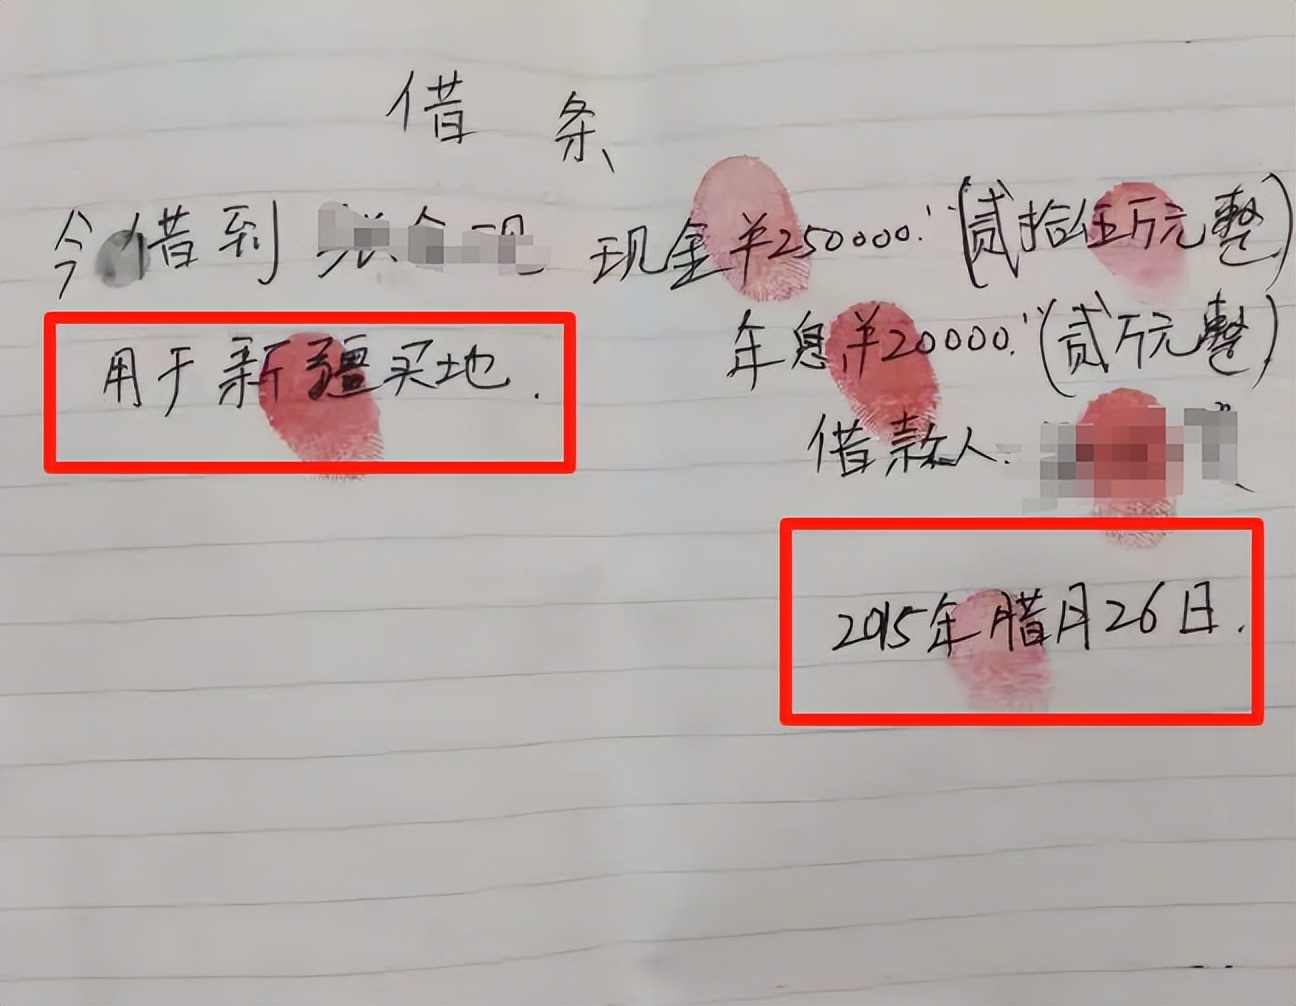 借条
今借到 现金¥250000.(贰拾伍万元整)
用于新疆买地.
年息¥20000.(贰万元整)
借款人.
2015年腊月26日.